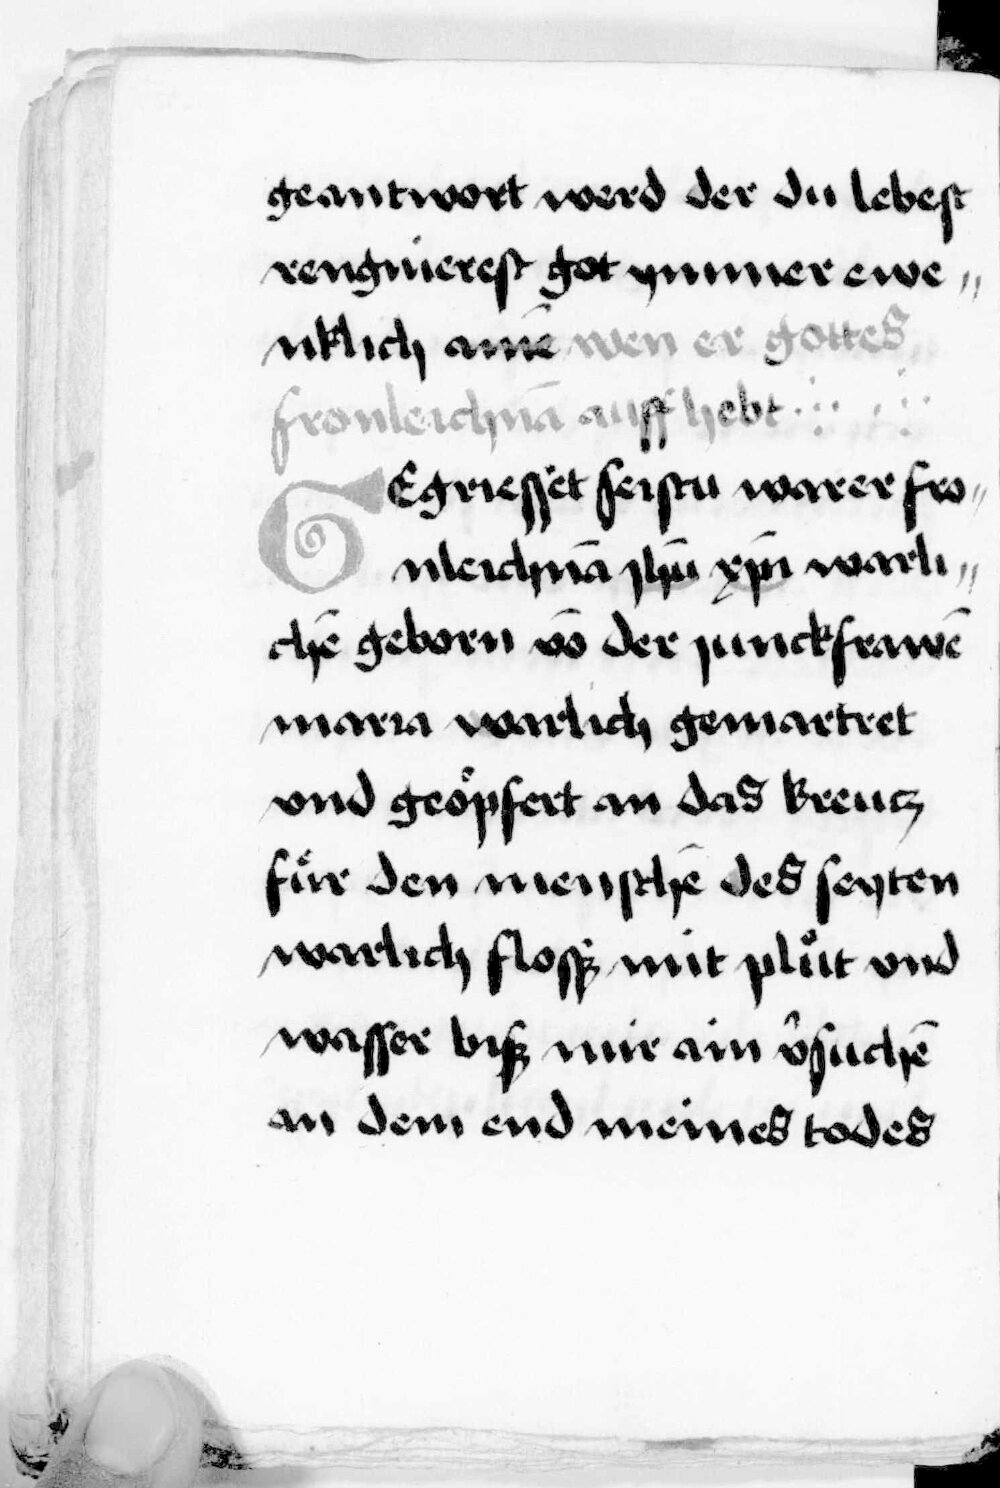 geantwort werd der du lebest
rengnierest got ymmer ewe〃
nklich amē wen er gottes
fronleichnā auff hebt
GEgriesset seistu warer fro〃
nleichnā jhū xpī warli〃
chē geborn vō der junckfrawē
maria warlich gemartret
vnd geoͤpfert an das kreutz
fuͤr den menschē des seyten
warlich flossz mit pluͦt vnd
wasser bisz mir ain v̂suchē
an dem end meines todes